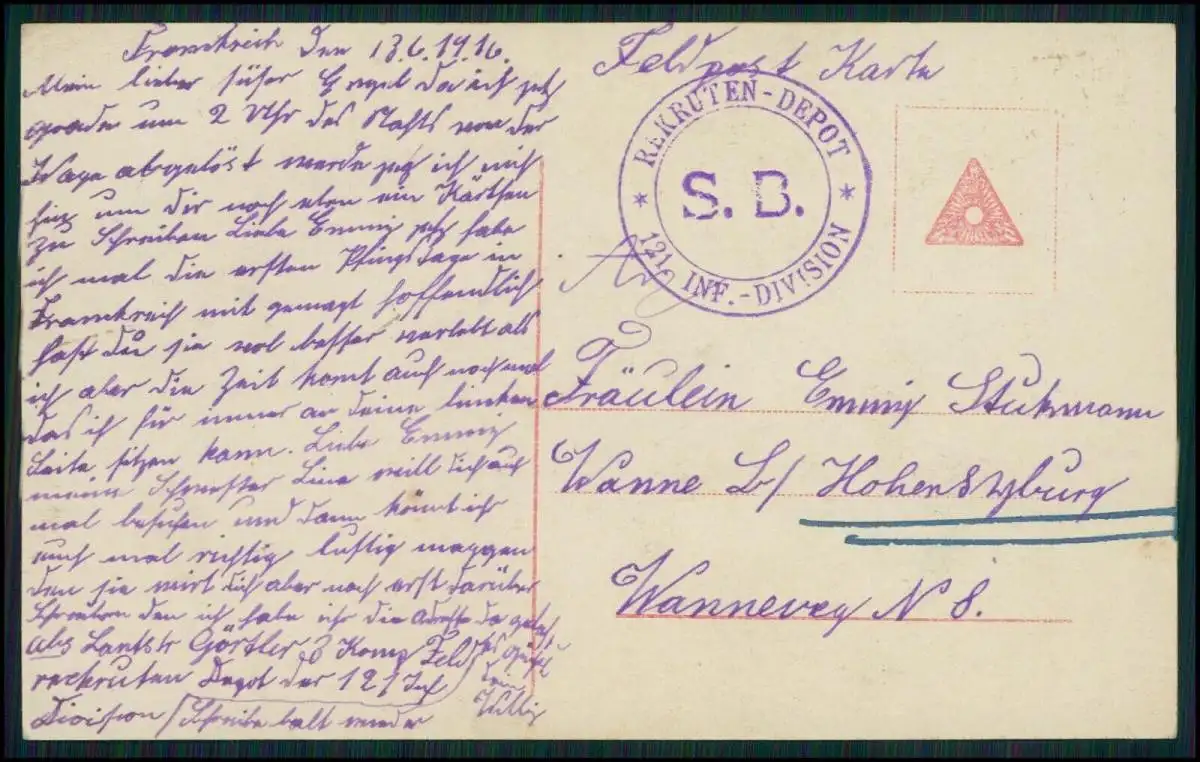 Frankreich den 13.6.1916.
Mein lieber süser Engel da ich jetz
grade um 2 Uhr des Nachts von der
Wage abgelöst werde setz ich mich
hin um dir noch eben ein Kärtchen
zu Schreiben Liebe Emmy jetz habe
ich mal die ersten Pfingstage in
Frankreich mit gemagt hoffendlich
hast du sie wol besser verlebt als
ich aber die Zeit komt auch noch mal
das ich für immer an deine linken
Seite sitzen kann. Liebe Emmy
meine Schwester Line will dich auch
mal besuchen und dann könnt ich
euch mal richtig lustig maggen
den sie wirt dich aber noch erst darüber
Schreiben den ich habe ihr die Adresse da
Abs Lantstr Görtler 3 Komp Feld
reckruten Depot der 121 Inf
Division / Schreibe balt wieder
es grüst
dein
Willy
Feldpost Karte
REKRUTEN-DEPOT
S. B.
121. INF.-DIVISION
An
Fräulein Emmy Stukmann
Wanne B/ Hohensyburg
Wanneweg N 8.